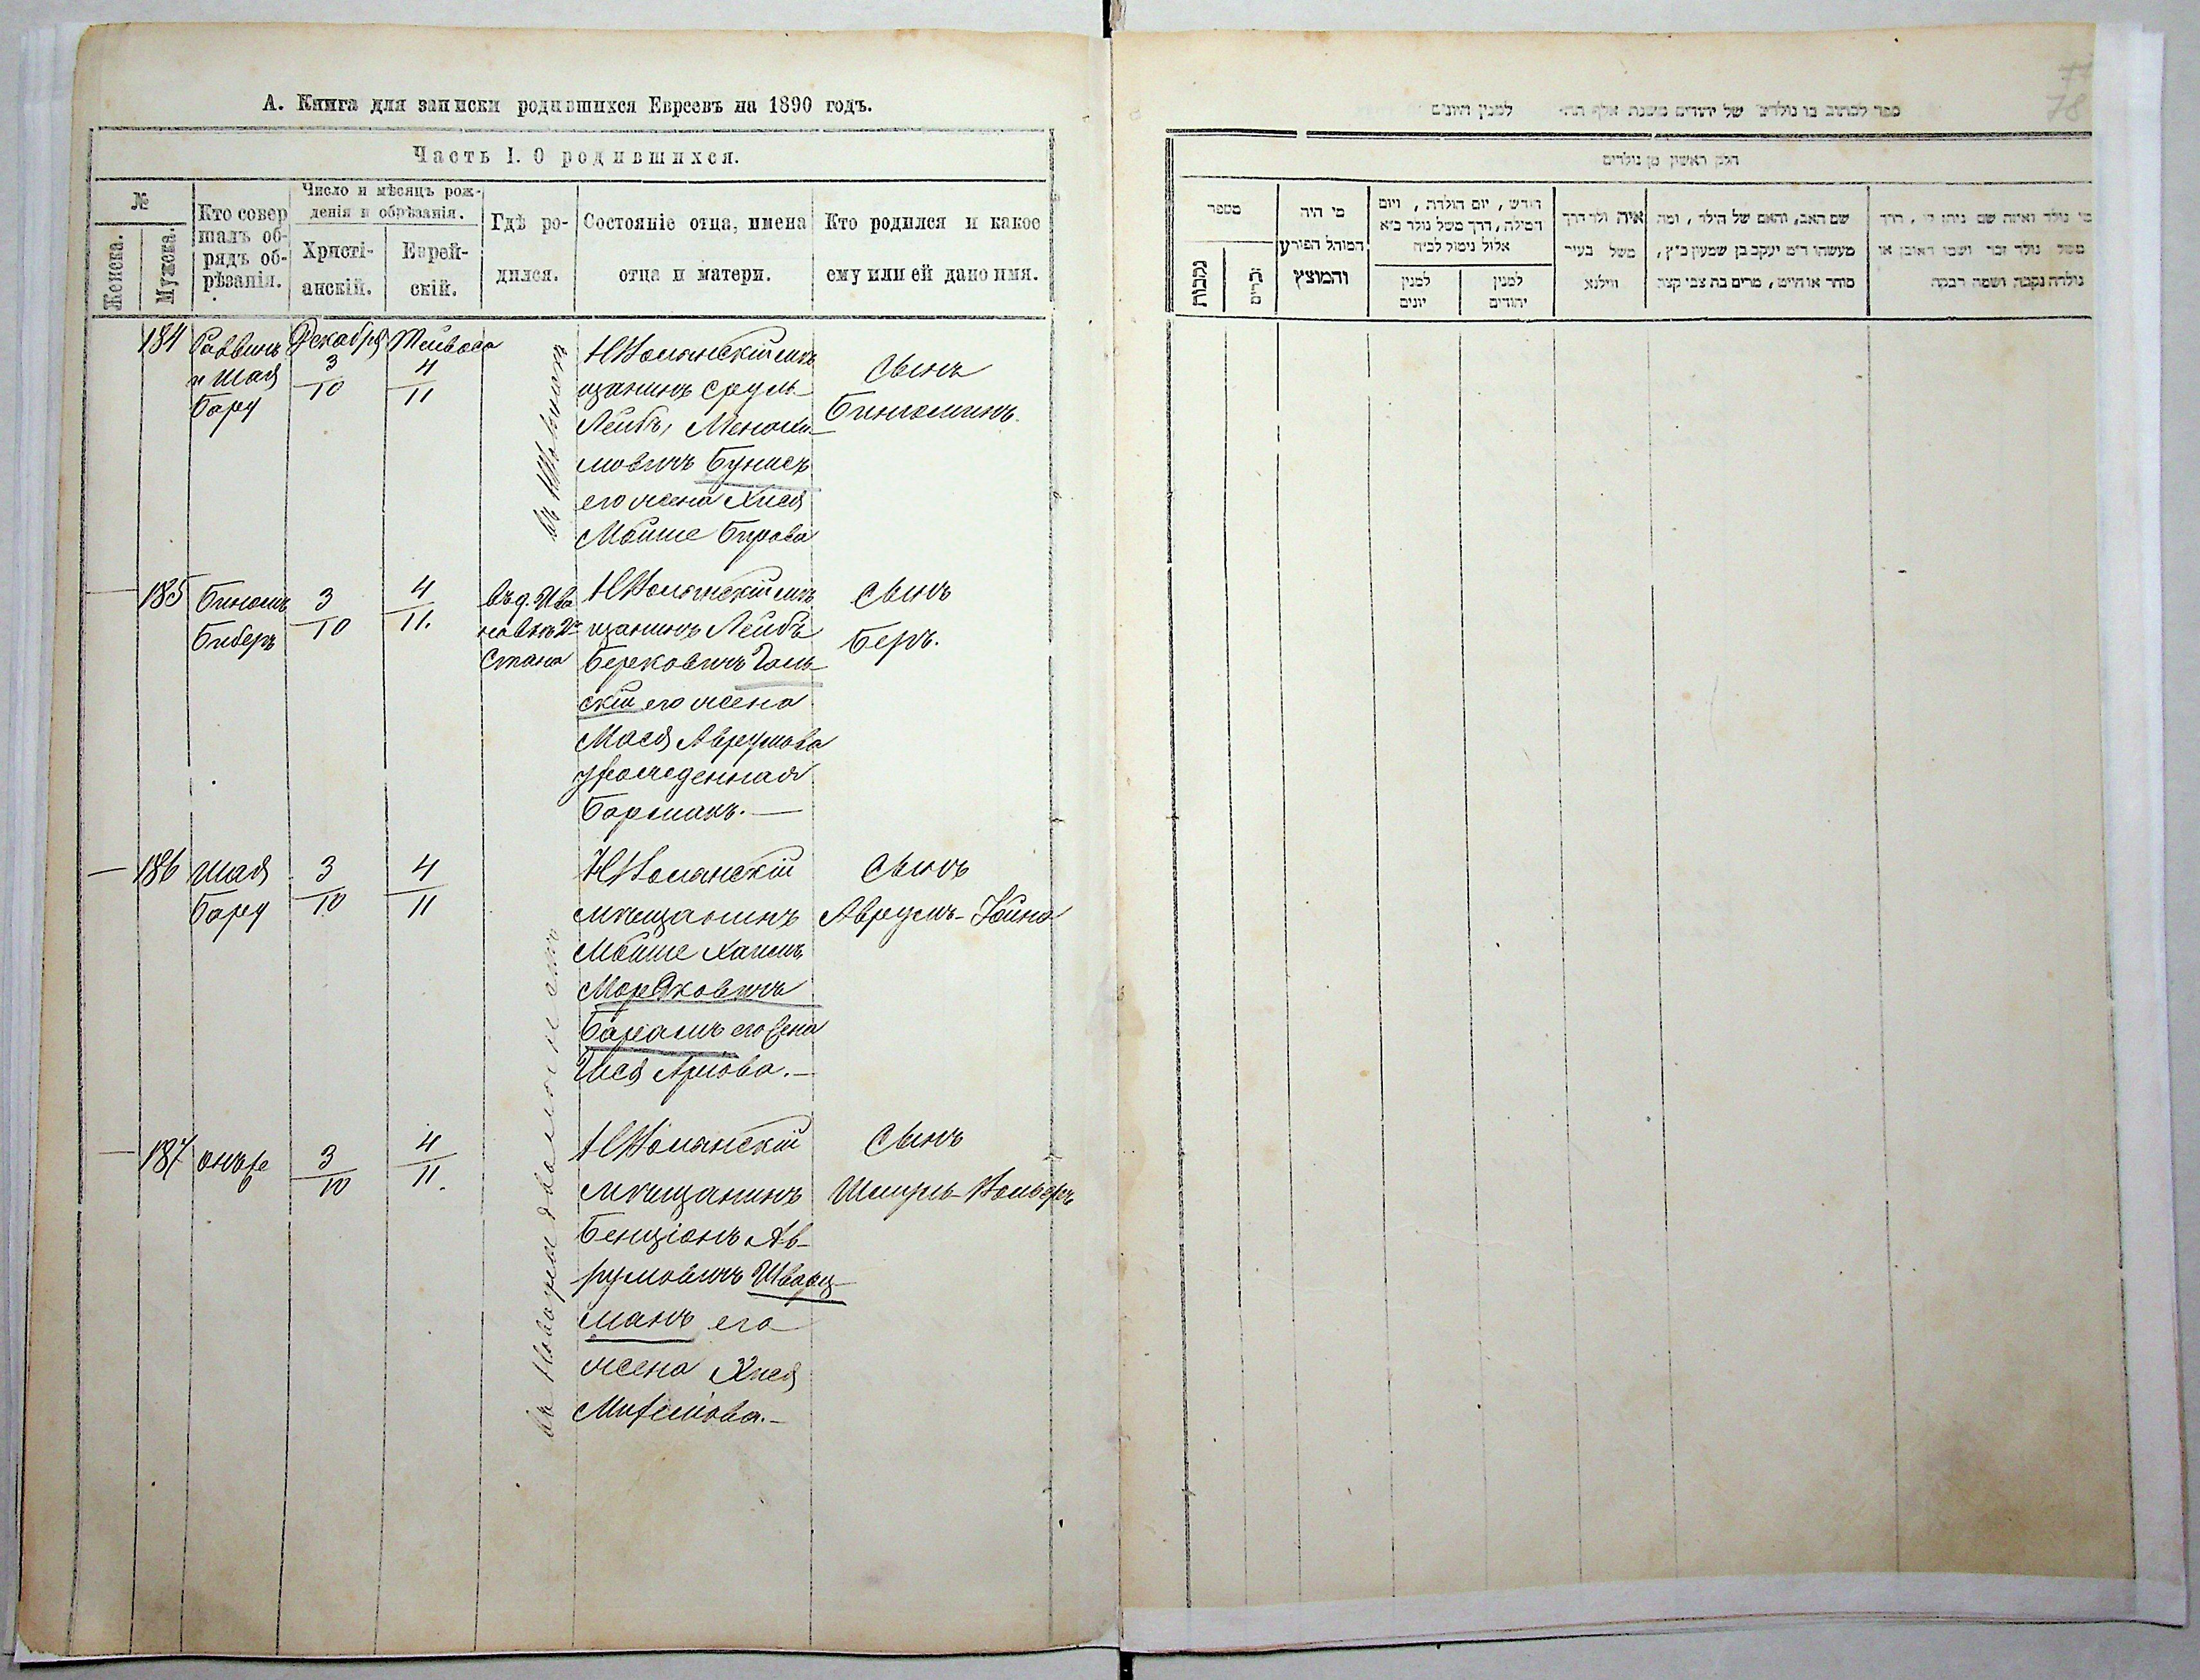 А. Книга для записки родившихся Евреевъ на 1890 годъ.
Часть I. О родившихся.
№
Женска.
Мужеска.
Кто совер
шалъ об-
рядъ об-
рѣзанія.
Число и мѣсяцъ рож-
денія и обрѣзанія.
Христі-
анскій.
Еврей-
скій.
Гдѣ ро-
дился.
Состояніе отца, имена
отца и матери.
Кто родился и какое
ему или ей дано имя.
184
Раввинъ
и Шая
Бару
Декабря
3
10
Тейвеса
4
11
мѣ-
щанинъ Сруль
Лейбъ, Менахи-
мовичъ Бунисъ
его жена Хися
Мойше Бирова
Сынъ
Биніоминъ.
185
Биніомъ
Биберъ
3
10
4
11.
въ д. Ива
новкѣ 2го
Стана
мѣ-
щанинъ Лейбъ
Берековичъ Голь-
скій его жена
Мася Аврумова
урожденная
Сынъ
Беръ.
186
Шая
Бару
3
10
4
11
мѣщанинъ
Мойше Хаимъ
Мордковичъ
Барамъ его жена
Сынъ
Аврумъ-Іойна
187
онъ же
3
10
4
11.
мѣщанинъ
Бенціонъ Ав-
румовичъ Шварц-
манъ его
жена Хися
Сынъ
Шмуль-Вольфъ
77
78
ספר לכתוב בו נולדים של יהודים משנת אלף תת׳ למנין היונים
חלק ראשון מן נולדים
מספר
נקבות
זכרים
מי היה
המוהל הפורע
והמוצץ
חודש, יום הולדת, ויום
המילה, דרך משל נולד כ״א
אלול נימול לכ״ח
למנין
יונים
למנין
יהודים
איה ולד דרך
משל בעיר
ווילנא
שם האב, והאם של הילד, ומה
מעשהו ד״מ יעקב בן שמעון כ״ץ,
סוחר או חייט, מרים בת צבי קצב
מי נולד ואיזה שם ניתן לו, דרך
משל נולד זכר ושמו ראובן או
נולדה נקבה ושמה רבקה